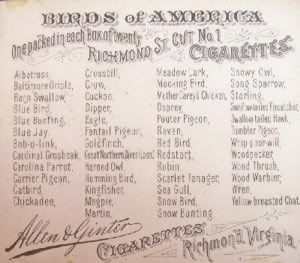 BIRDS of AMERICA
One packed in each box of twenty
RICHMOND ST. CUT No. 1
CIGARETTES.
Albatross,
Baltimore Oriole,
Barn Swallow,
Blue Bird,
Blue Bunting,
Blue Jay,
Bob-o-link,
Cardinal Grosbeak,
Carolina Parrot,
Carrier Pigeon,
Catbird,
Chickadee,
Crossbill,
Crow,
Cuckoo,
Dipper,
Eagle,
Fantail Pigeon,
Goldfinch,
Great Northern Diver (Loon)
Horned Owl,
Humming Bird,
Kingfisher,
Magpie,
Martin,
Meadow Lark,
Mocking Bird,
Mother Carey's Chicken,
Osprey,
Pouter Pigeon,
Raven,
Red Bird,
Redstart,
Robin,
Scarlet Tanager,
Sea Gull,
Snow Bird,
Snow Bunting.
Snowy Owl,
Song Sparrow,
Starling,
Swallow-tailed Flycatcher,
Swallow tailed Hawk,
Tumbler Pigeon,
Whip-poor-will,
Woodpecker,
Wood Thrush,
Wood Warbler,
Wren,
Yellow breasted Chat.
Allen & Ginter
CIGARETTES
Richmond, Virginia.